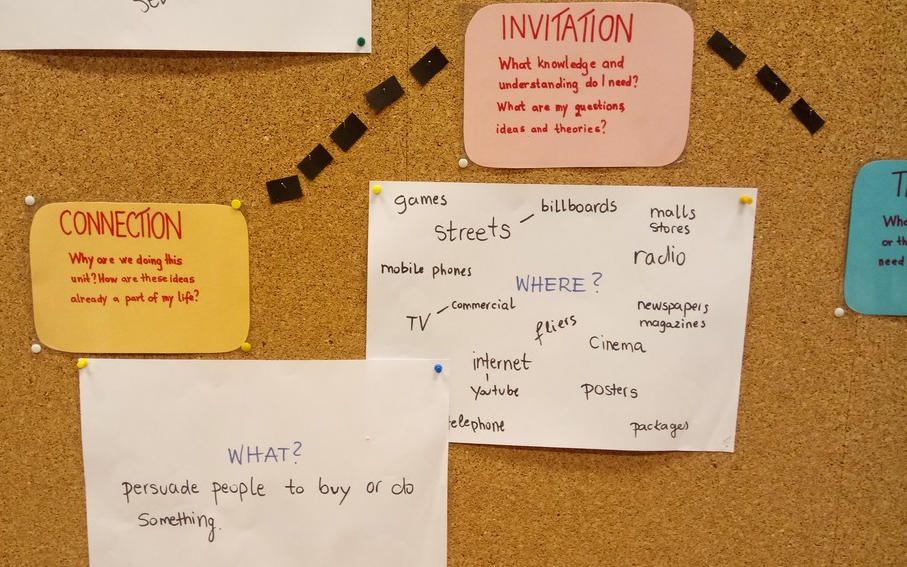 INVITATION
What knowledge and
understanding do I need?
What are my questions,
ideas and theories?
CONNECTION
Why are we doing this
unit? How are these ideas
already a part of my life?
games
billboards
streets
malls
stores
radio
mobile phones
WHERE?
commercial
TV
newspapers
magazines
fliers
Cinema
internet
Youtube
posters
telephone
packages
WHAT?
persuade people to buy or do
something.
or th
need